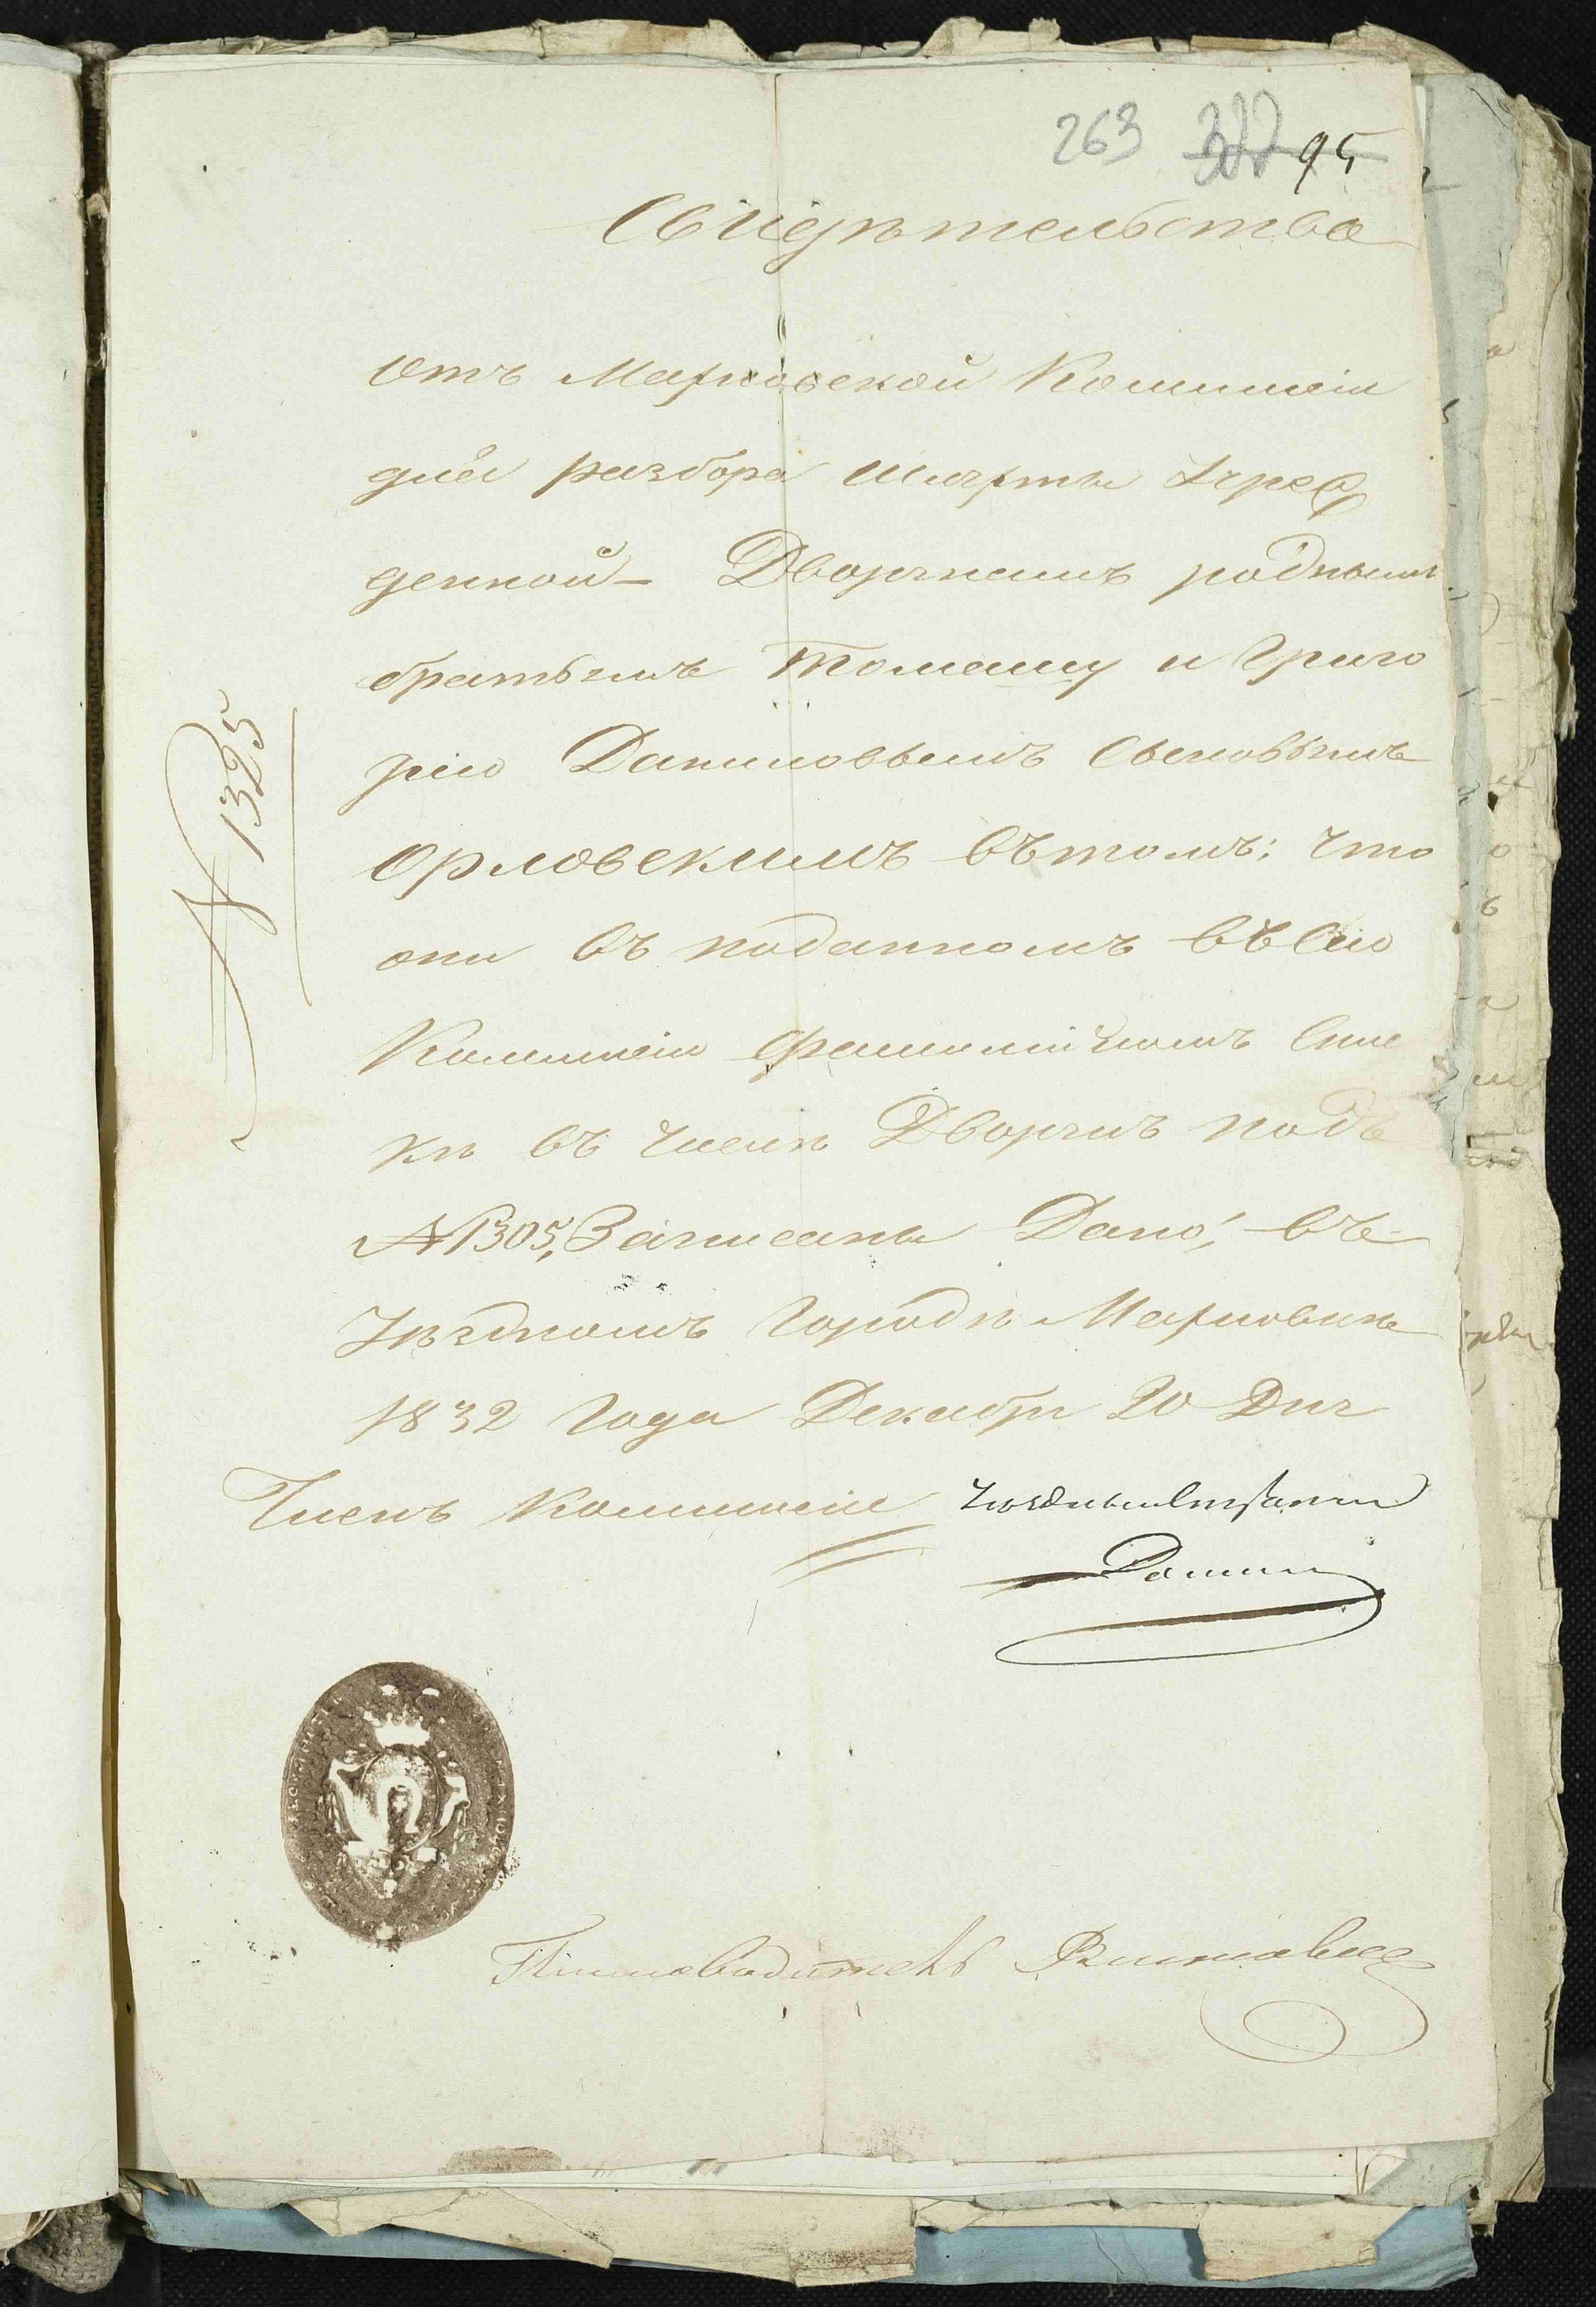 263 95
Свидѣтельство
Отъ Марховской Комиссіи
для разбора Шляхты Учреж
денной Дворянамъ роднымъ
братьямъ Томашу и Григо
рію Даниловымъ Сыновьямъ
Орловскимъ въ томъ: что
они въ поданномъ въ Сію
Комиссію Фамилійномъ Спис
кѣ въ числѣ Дворянъ подъ
№ 1305, Записаны Дано, въ
Уѣздномъ Городѣ Марховкѣ
1832 Года Декабря 20 Дня
Членъ Комиссіи Уѣздный Стряпчій
Письмоводитель
№ 1325